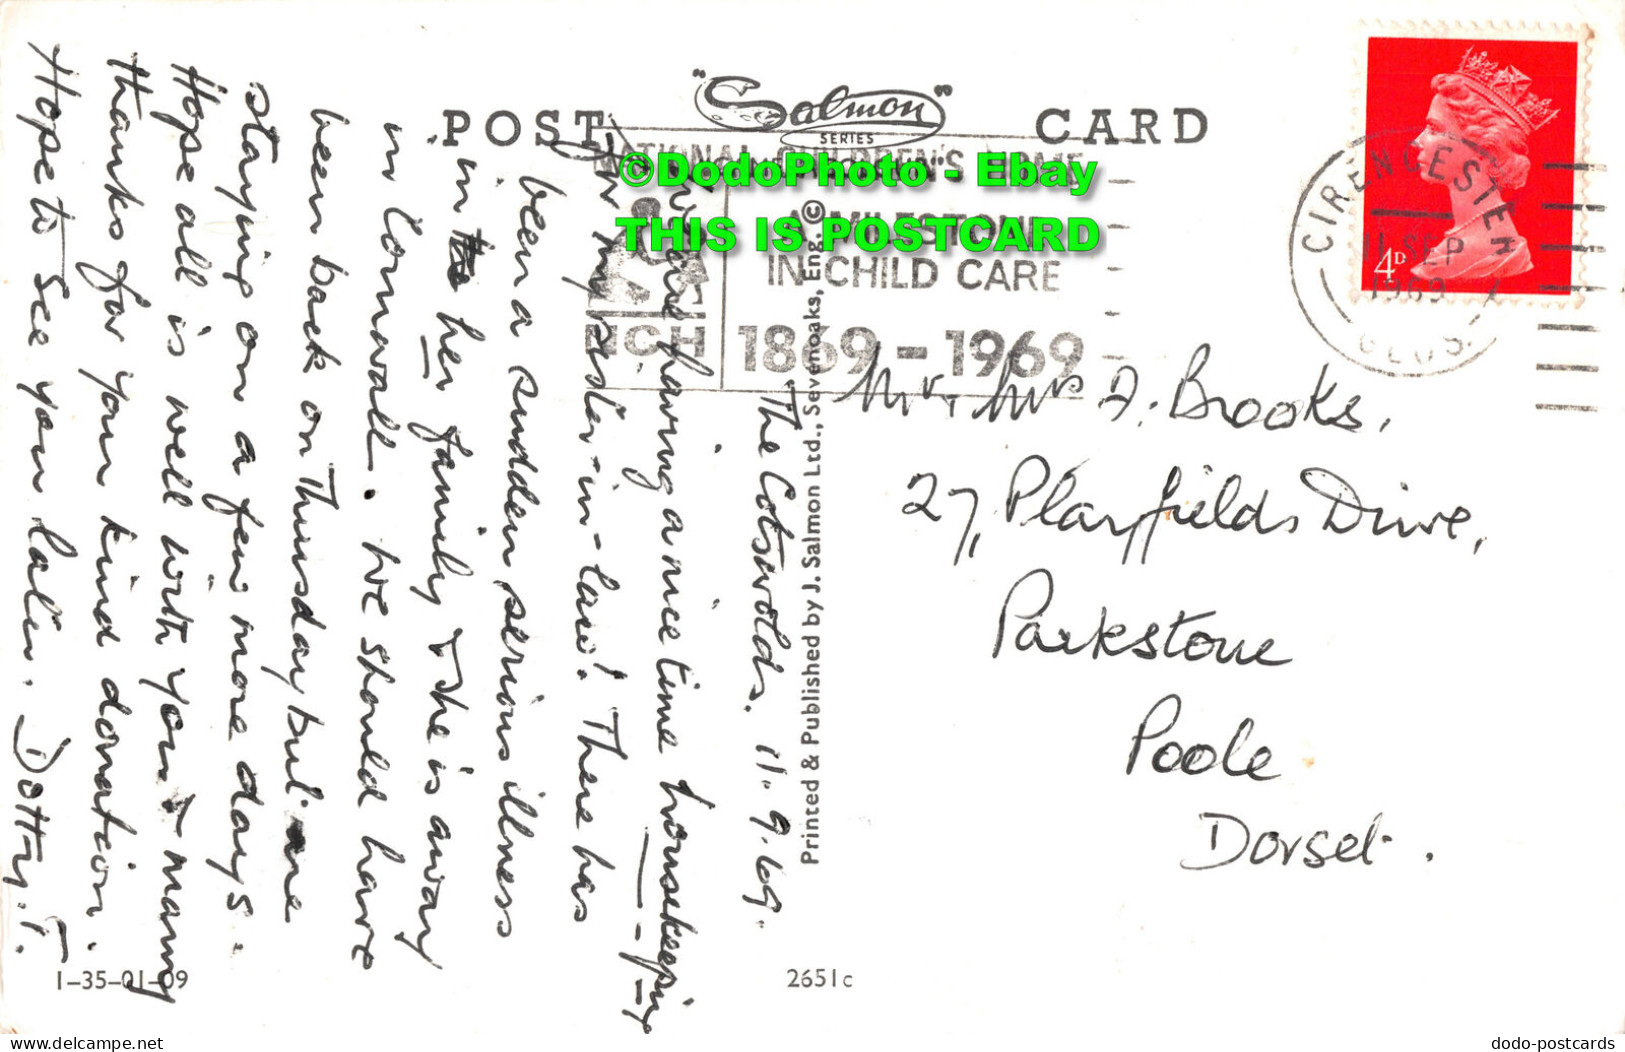 POST CARD
"Salmon"
SERIES
©DodoPhoto - Ebay
THIS IS POSTCARD
NATIONAL CHILDREN'S HOME
A MILESTONE
IN CHILD CARE
NCH 1869-1969
CIRENCESTER
11 SEP
1969
GLOS.
4D
The Cotswolds. 11.9.69.
We are having a nice time housekeeping
for my sister-in-law! There has
been a sudden serious illness
in the her family & she is away
in Cornwall. We should have
been back on Thursday but are
staying on a few more days.
Hope all is well with you & many
thanks for your kind donation.
Hope to see you later. Dotty. T.
Mr. & Mrs D. Brooks,
27, Playfields Drive,
Parkstone
Poole
Dorset.
Printed & Published by J. Salmon Ltd., Sevenoaks, Eng. ©
1-35-01-09
2651c
Powered by TCPDF (www.tcpdf.org)
dodo-postcards